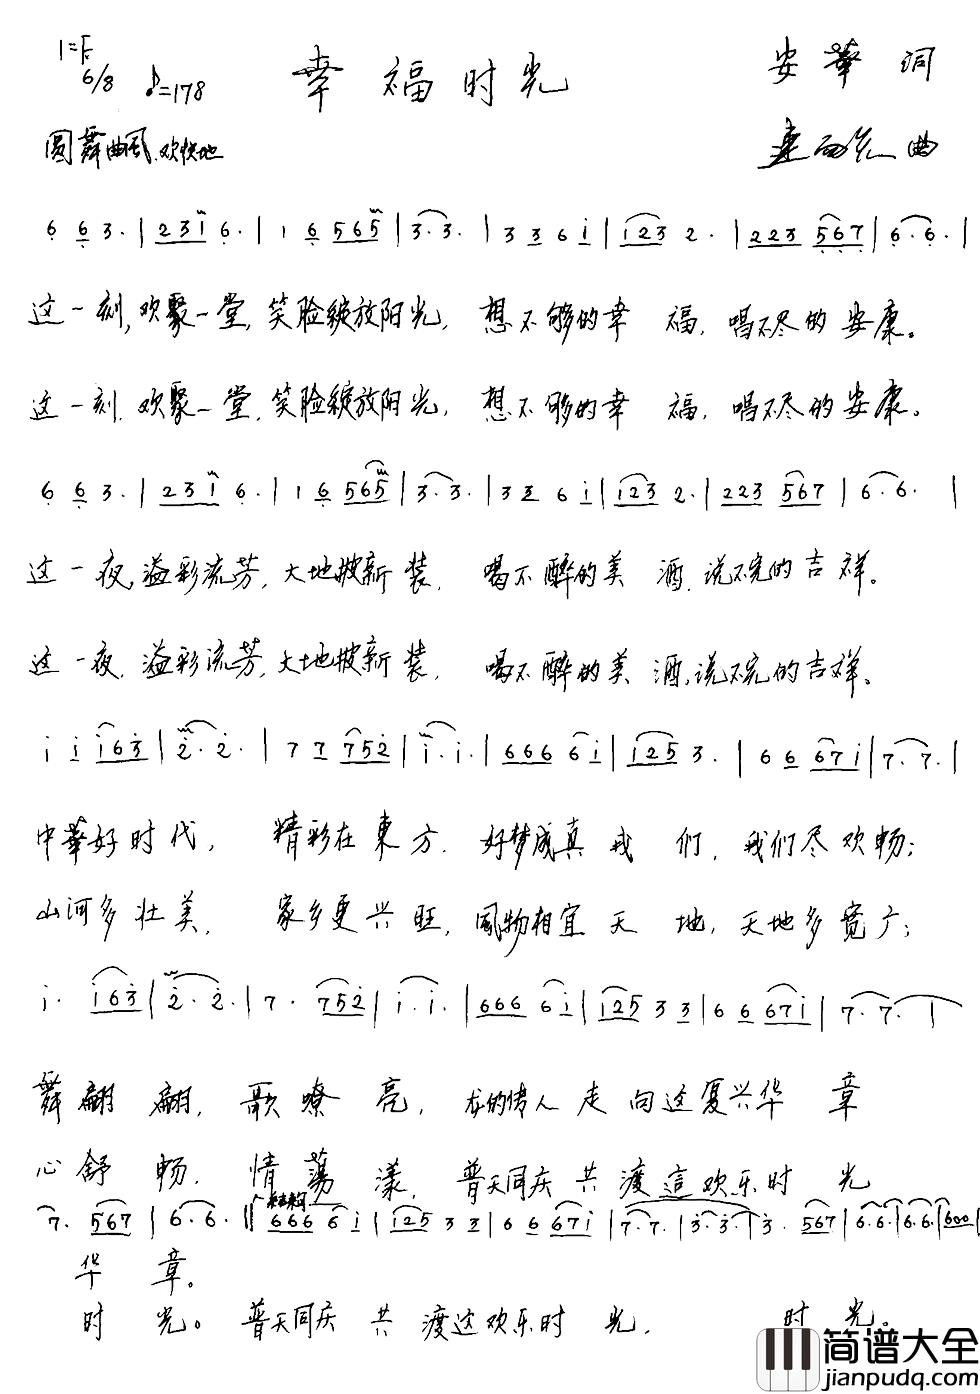 1=F
6/8 ♪=178
幸福时光
安華 词
圆舞曲风.欢快地
曲
6 6 3. | 2 3 1 6. | 1 6 5 6 5 | 3. 3. | 3 3 6 i | i 2 3 2. | 2 2 3 5 6 7 | 6. 6. |
这一刻,欢聚一堂,笑脸绽放阳光, 想不够的幸 福, 唱不尽的安康。
这一刻,欢聚一堂,笑脸绽放阳光, 想不够的幸 福, 唱不尽的安康。
6 6 3. | 2 3 1 6. | 1 6 5 6 5 | 3. 3. | 3 3 6 i | i 2 3 2. | 2 2 3 5 6 7 | 6. 6. |
这一夜,溢彩流芳,大地披新装, 喝不醉的美 酒,说不完的吉祥。
这一夜,溢彩流芳,大地披新装, 喝不醉的美 酒,说不完的吉祥。
i i i 6 3 | 2. 2. | 7 7 7 5 2 | i. i. | 6 6 6 6 i | i 2 5 3. | 6 6 6 7 i | 7. 7. |
中華好时代, 精彩在東方, 好梦成真我们, 我们尽欢畅;
山河多壮美, 家乡更兴旺, 風物相宜天地, 天地多宽广;
i. i 6 3 | 2. 2. | 7. 7 5 2 | i. i. | 6 6 6 6 i | i 2 5 3 3 | 6 6 6 7 i | 7. 7. |
舞翩翩, 歌嘹亮, 龙的传人走向这复兴华章
心舒畅, 情荡漾, 普天同庆共渡這欢乐时光
7. 5 6 7 | 6. 6. :|| 6 6 6 6 i | i 2 5 3 3 | 6 6 6 7 i | 7. 7. | 3. 3. | 3. 5 6 7 | 6. 6. | 6. 6. | 6 0 0 |
结束句
华章。
时光。普天同庆共渡这欢乐时光, 时光。
简谱大全
jianpudq.com